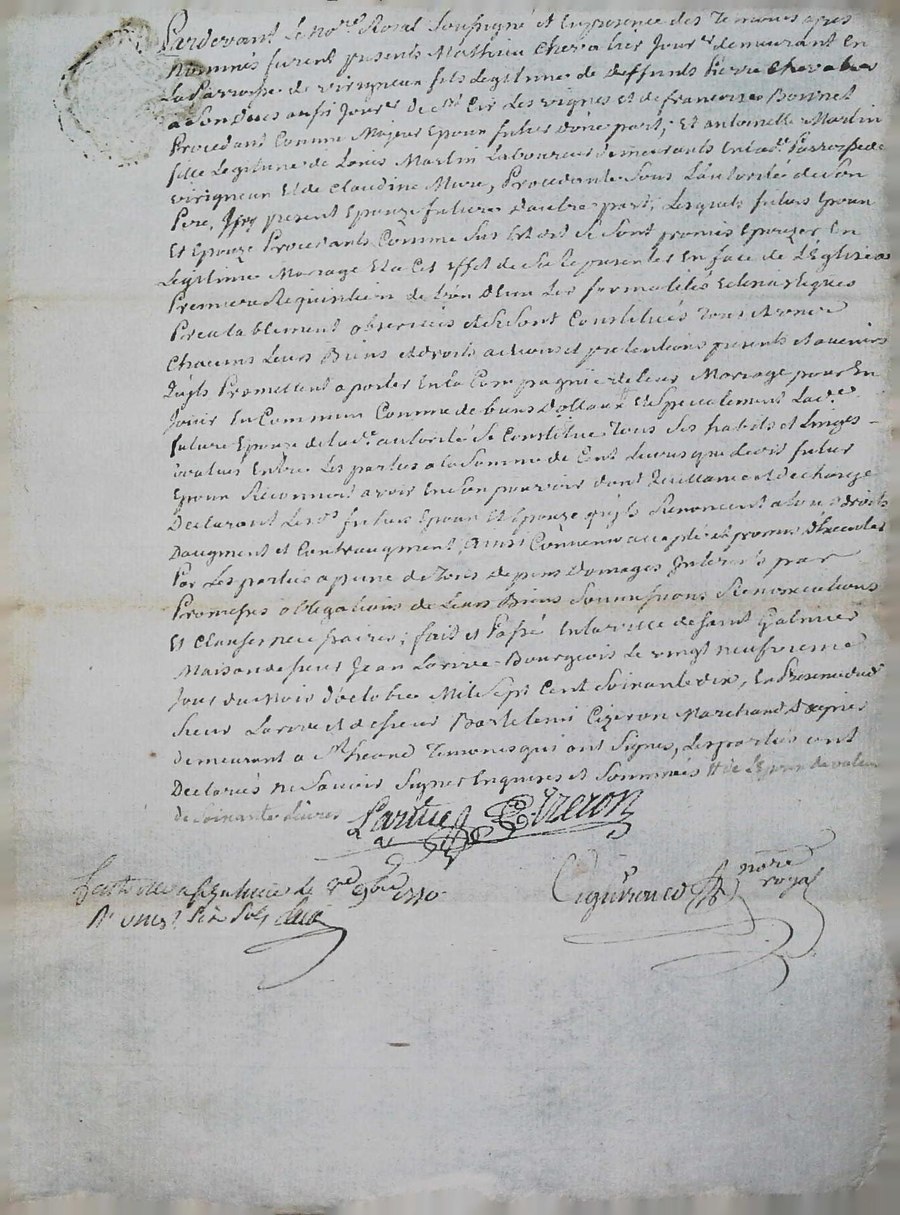 Pardevant Le no.re Royal Soussigné et En presence des Temoins apres
nommés furent presents Mathieu Chevalier Jour.r demeurant En
La Parroisse de virigneux fils Legitime de deffunts Pierre Chevalier
vivant aussi Jour.r de Les vignes et de francoise Bonnet
Procedant Comme Majeur Epoux futur d'une part, Et antoinette Martin
fille Legitime de Louis Martin Laboureur demeurants En lad. Parroisse de
virigneux Et de Claudine Mure, Procedante Sous L'autorité de Son
Pere, Icy present Epouze future d'autre part, Lesquels futurs Epoux
Et Epouze Procedants Comme Sus Est dit Se Sont promis Epouzer En
Legitime Mariage Et a Cet Effet de Se Representer En face de L'Eglise a
Premiere Requisition de L'un d'Eux Les formalités Eclesiastiques
Prealablement observées et Se Sont Constitués Tous et
Chacuns Leurs Biens et droits actions et pretentions presents et avenirs
Qu'ils Promettent aporter En La Compagnie de Leur Mariage pour En
Jouir En Commun Comme de biens Dottaux Et Specialement Lad.e
future Epouze de lad.e autorité Se Constitue Tous Ses habits et Linges
évalués Entre Les parties a la Somme de Cent Livres que Ledit futur
Epoux Reconnoit avoir En Son pouvoir dont Quittance et decharge
Declarant Les d. futurs Epoux Et Epouze qu'ils Renoncent a tous droits
D'augment et Contraugment, ainsi Convenu accepté et promis d'Executer
Par Les parties a peine de Tous depens Domages Interets par
Promesses obligations de Leurs Biens Soumissions Renonciations
Et Clauses necessaires; fait et Passé En La ville de Saint Galmier
Maison de Sieur Jean Larive Bourgeois Le vingt neufvieme
Jour du Mois d'octobre Mil Sept Cent Soixante dix, En Presence dud.
Sieur Larive et de Sieur Bartelemi Cizeron Marchand
demeurant a St. heand Temoins qui ont Signés, Les parties ont
Declarées ne Savoir Signer Enquises et Sommées de valeur
de Soixante Livres
Larive Cizeron
le 8.bre 1770
R. sols
no.re
royal